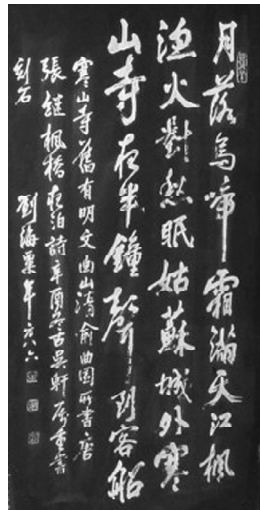 月落烏啼霜滿天江楓
漁火對愁眠姑蘇城外寒
山寺夜半鐘聲到客船
寒山寺舊有明文衡山清俞曲園所書唐
張繼楓橋夜泊詩辛酉冬古吳軒屬重書
刻石
劉海粟年八六